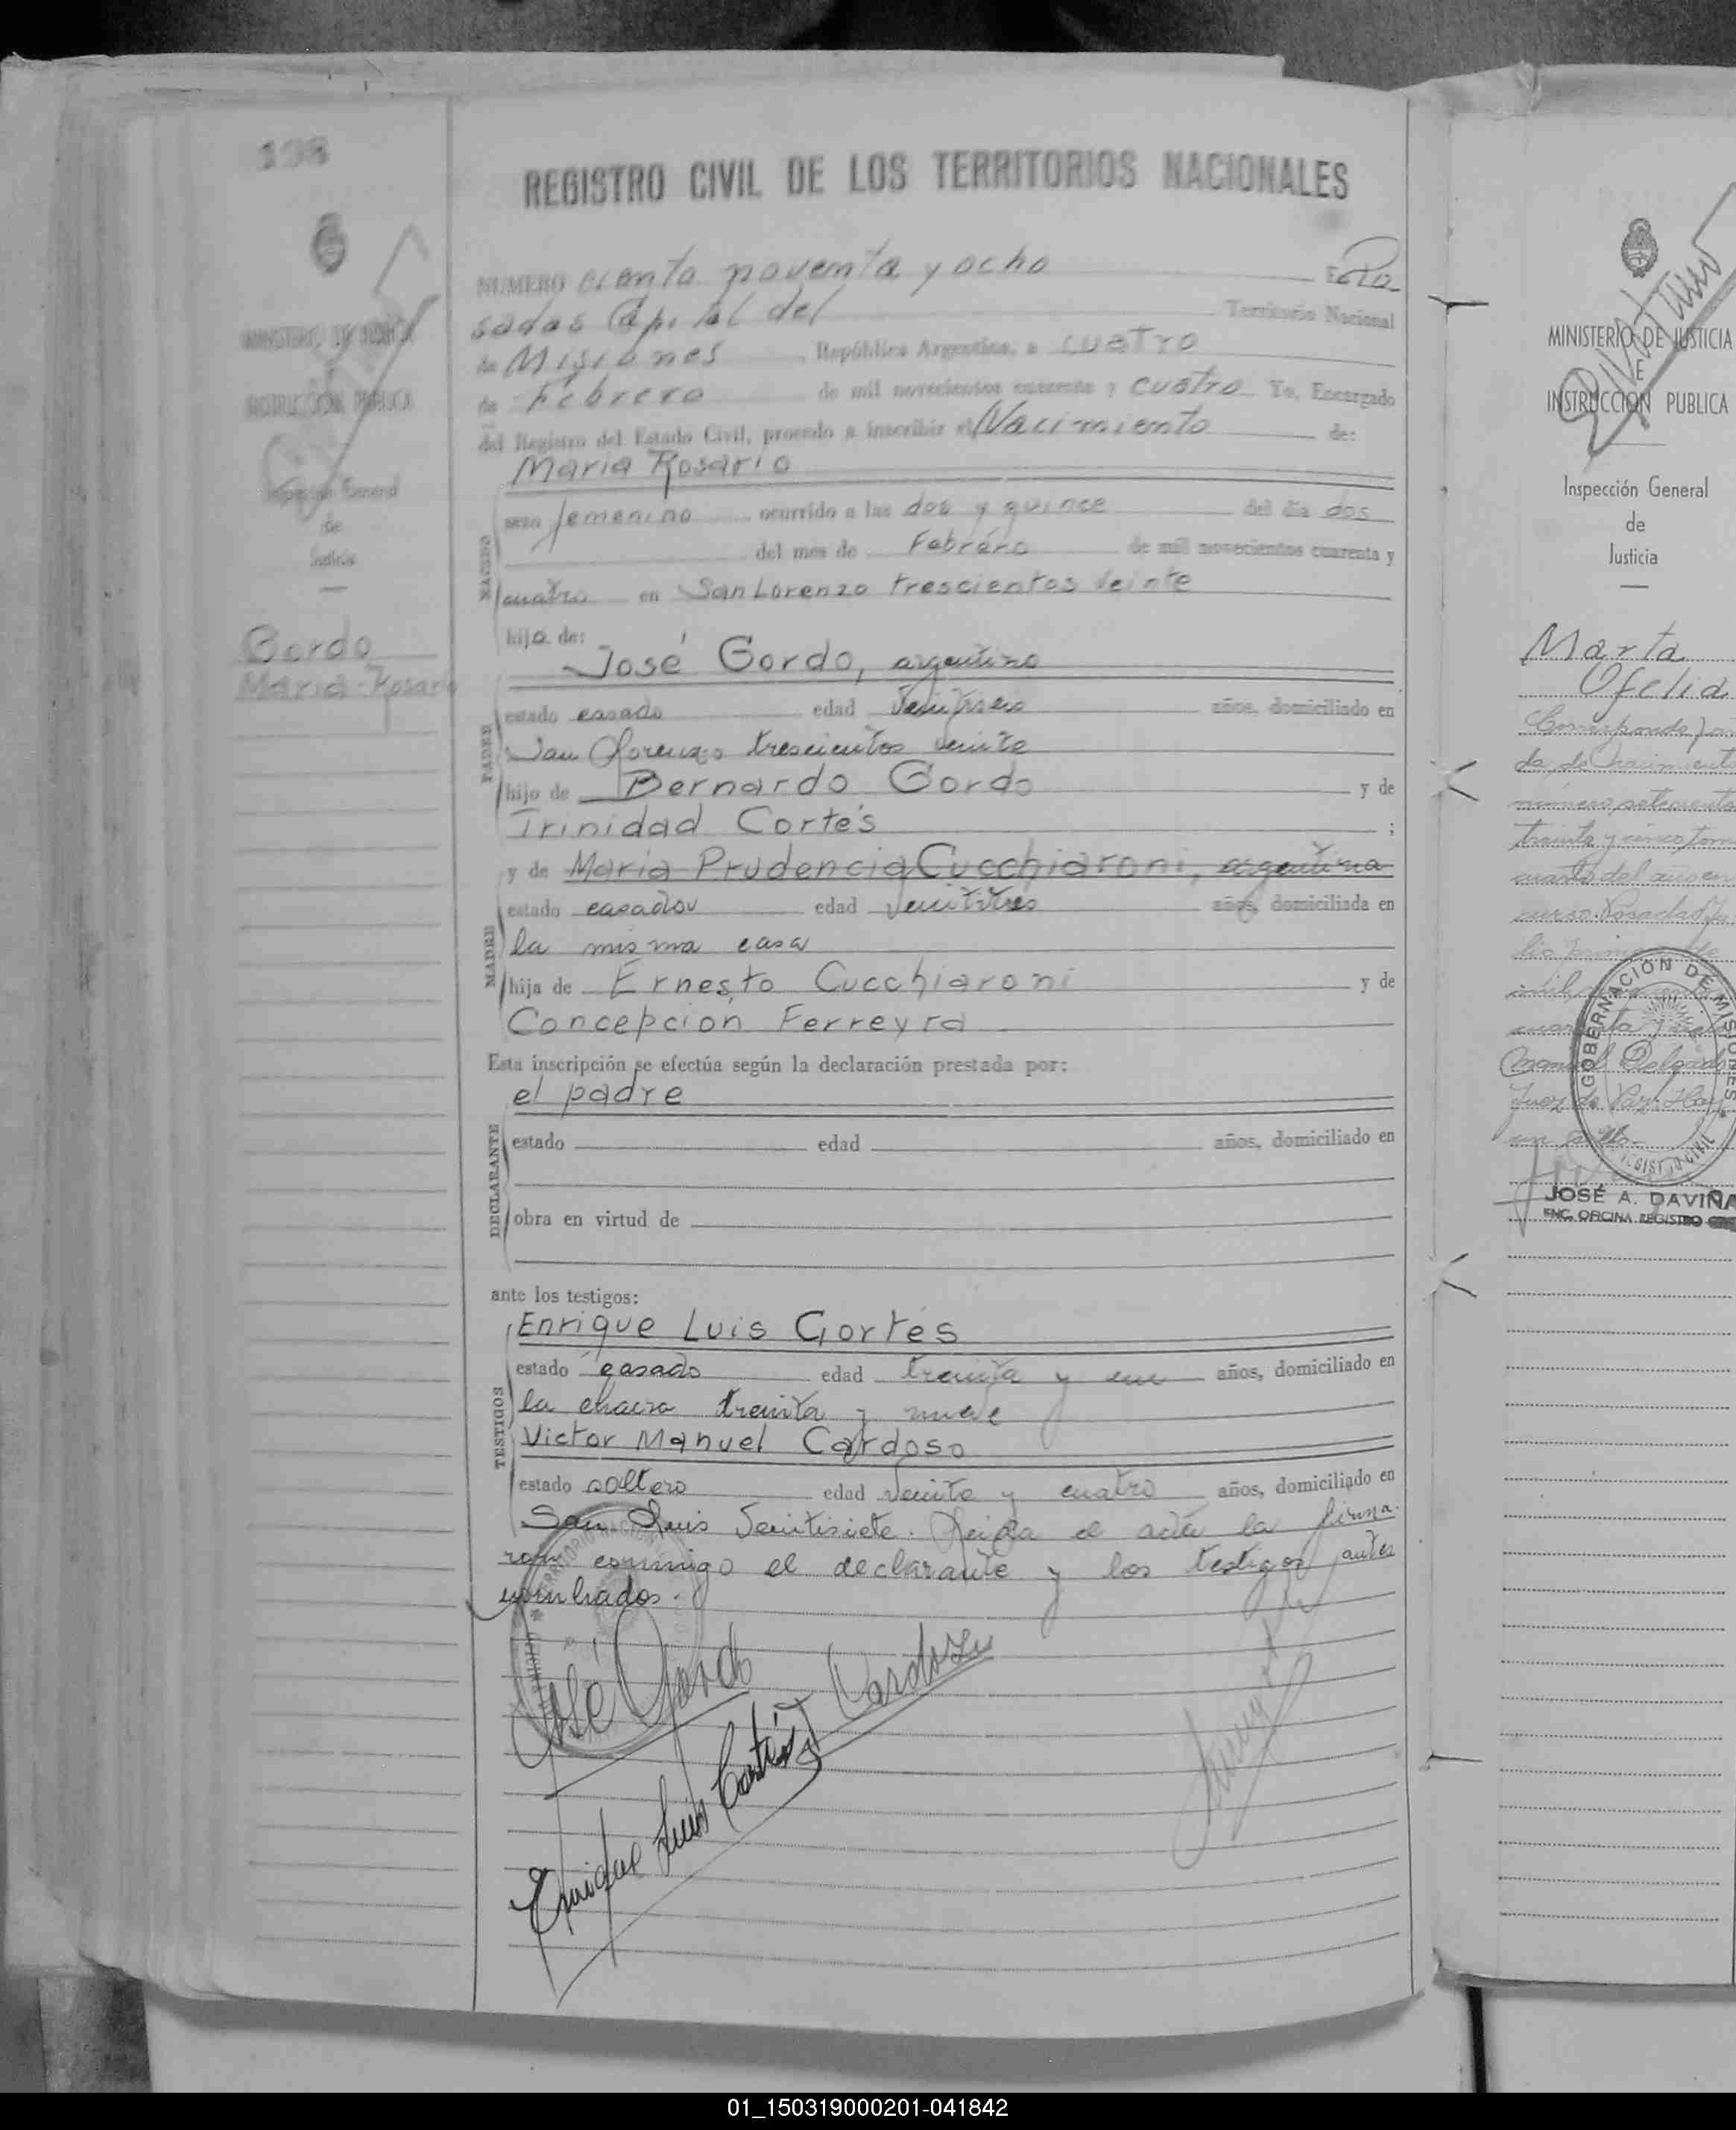 198
MINISTERIO DE JUSTICIA
E
INSTRUCCIÓN PUBLICA
Inspección General
de
Justicia
Gordo
Maria Rosario
REGISTRO CIVIL DE LOS TERRITORIOS NACIONALES
NUMERO ciento noventa y ocho En Po
sadas Capital del Territorio Nacional
de Misiones República Argentina, a cuatro
de Febrero de mil novecientos cuarenta y cuatro Yo, Encargado
del Registro del Estado Civil, procedo a inscribir el Nacimiento de:
Maria Rosario
NACIDO
sexo femenino ocurrido a las dos y quince del día dos
del mes de Febrero de mil novecientos cuarenta y
cuatro en San Lorenzo trescientos veinte
hija de:
José Gordo, argentino
PADRE
estado casado edad años, domiciliado en
San Lorenzo trescientos veinte
hijo de Bernardo Gordo y de
Trinidad Cortés ;
y de María Prudencia Cucchiaroni, argentina
MADRE
estado casada edad veintitres años, domiciliada en
la misma casa
hija de Ernesto Cucchiaroni y de
Concepcion Ferreyra
Esta inscripción se efectúa según la declaración prestada por:
el padre
DECLARANTE
estado edad años, domiciliado en
obra en virtud de
ante los testigos:
Enrique Luis Cortés
TESTIGOS
estado casado edad treinta y un años, domiciliado en
la chacra treinta y nueve
Victor Manuel Cardoso
estado soltero edad veinte y cuatro años, domiciliado en
San Luis veintisiete. Leida el acta la firma-
ron conmigo el declarante y los testigos antes
nombrados.
José Gordo
Cardozo
Enrique Luis Cortés
MINISTERIO DE JUSTICIA
E
INSTRUCCION PUBLICA
Inspección General
de
Justicia
Marta
Ofelia
GOBERNACION DE MISIONES
REGISTRO CIVIL
JOSÉ A. DAVIÑA
ENC. OFICINA REGISTRO
01_150319000201-041842